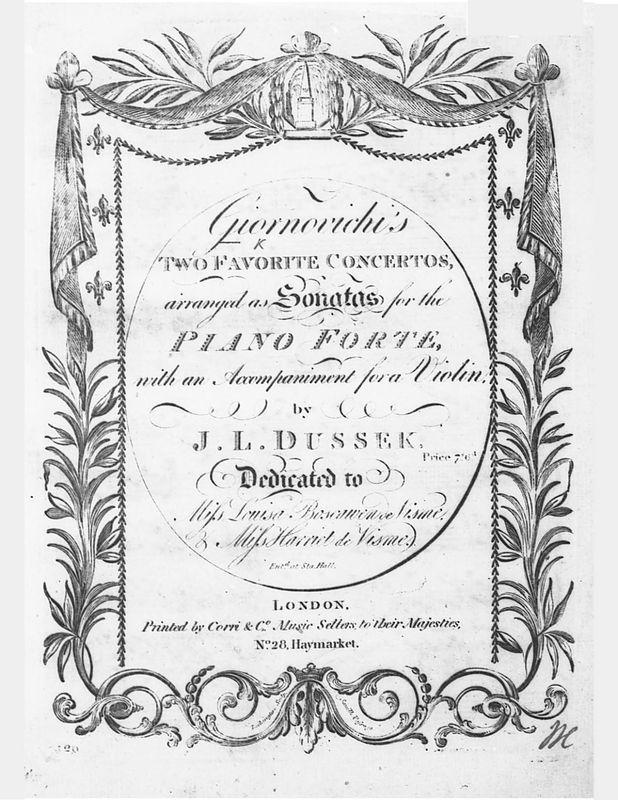 Giornovichi's
K
TWO FAVORITE CONCERTOS,
arranged as Sonatas for the
PIANO FORTE,
with an Accompaniment for a Violin,
by
J. L. DUSSEK.
Price 7s 6d
Dedicated to
Miſs Louisa Boscawen de Visme,
& Miſs Harriet de Visme.
Entd. at Sta. Hall.
LONDON,
Printed by Corri & Co. Music Sellers, to their Majesties,
No. 28, Haymarket.